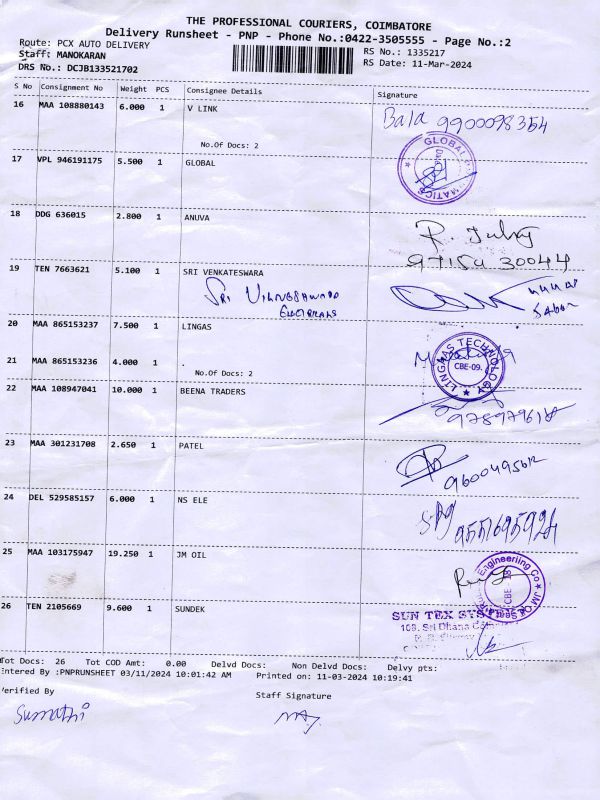 THE PROFESSIONAL COURIERS, COIMBATORE
Delivery Runsheet - PNP - Phone No.:0422-3505555 - Page No.:2
Route: PCX AUTO DELIVERY
RS No.: 1335217
Staff: MANOKARAN
RS Date: 11-Mar-2024
DRS No.: DCJB133521702
S No Consignment No Weight PCS Consignee Details Signature
16 MAA 108880143 6.000 1 V LINK
Bala 9900098354
No.Of Docs: 2
17 VPL 946191175 5.500 1 GLOBAL
GLOBAL
18 DDG 636015 2.800 1 ANUVA
30044
19 TEN 7663621 5.100 1 SRI VENKATESWARA
SRI
20 MAA 865153237 7.500 1 LINGAS
LINGAAS TECHNOLOGY
CBE-09.
21 MAA 865153236 4.000 1 .
No.Of Docs: 2
22 MAA 108947041 10.000 1 BEENA TRADERS
23 MAA 301231708 2.650 1 PATEL
24 DEL 529585157 6.000 1 NS ELE
25 MAA 103175947 19.250 1 JM OIL
Engineerling Co ★ JM
26 TEN 2105669 9.600 1 SUNDEK
SUN TEX SYSTEM
108, Sri Dhana
Tot Docs: 26 Tot COD Amt: 0.00 Delvd Docs: Non Delvd Docs: Delvy pts:
Entered By :PNPRUNSHEET 03/11/2024 10:01:42 AM Printed on: 11-03-2024 10:19:41
Verified By Staff Signature
Sumathi